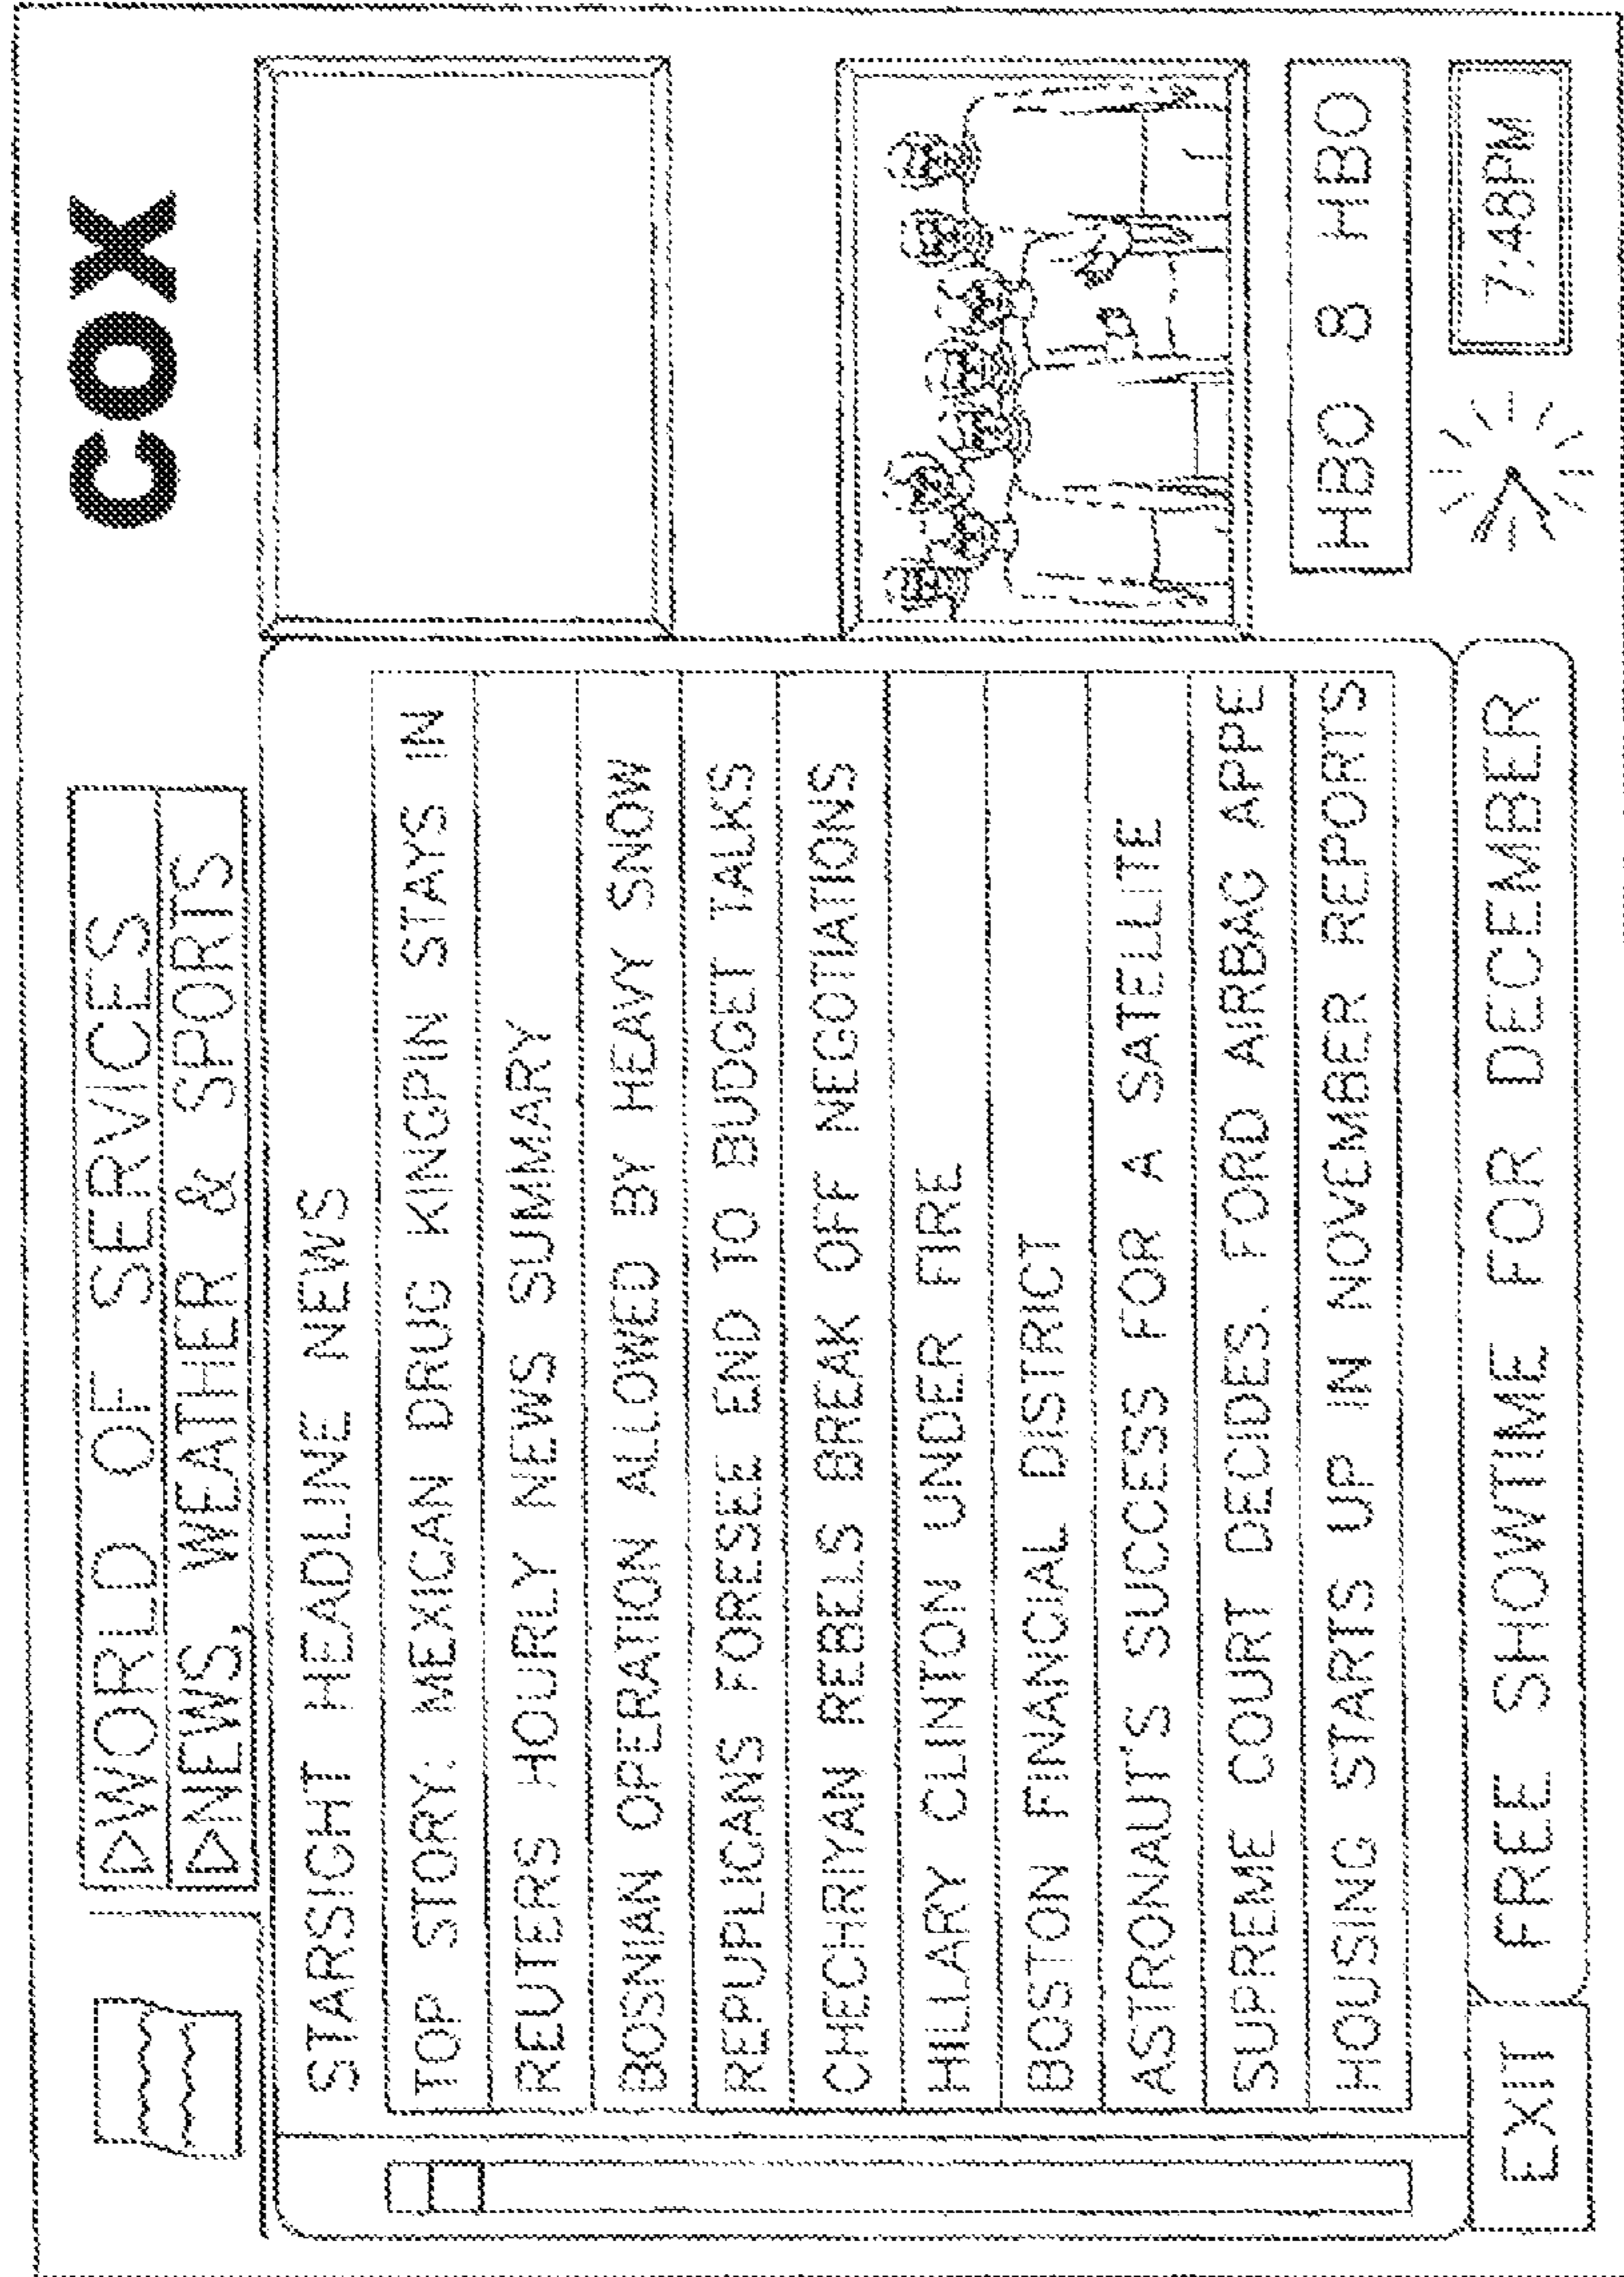 COX
▷WORLD OF SERVICES
▷NEWS, WEATHER & SPORTS
STARSIGHT HEADLINE NEWS
TOP STORY: MEXICAN DRUG KINGPIN STAYS IN
REUTERS HOURLY NEWS SUMMARY
BOSNIAN OPERATION ALLOWED BY HEAVY SNOW
REPUPLICANS FORESEE END TO BUDGET TALKS
CHECHRIYAN REBELS BREAK OFF NEGOTIATIONS
HILLARY CLINTON UNDER FIRE
BOSTON FINANCIAL DISTRICT
ASTRONAUT'S SUCCESS FOR A SATELLITE
SUPREME COURT DECIDES. FORD AIRBAG APPE
HOUSING STARTS UP IN NOVEMBER REPORTS
HBO 8 HBO
7:48PM
EXIT
FREE SHOWTIME FOR DECEMBER